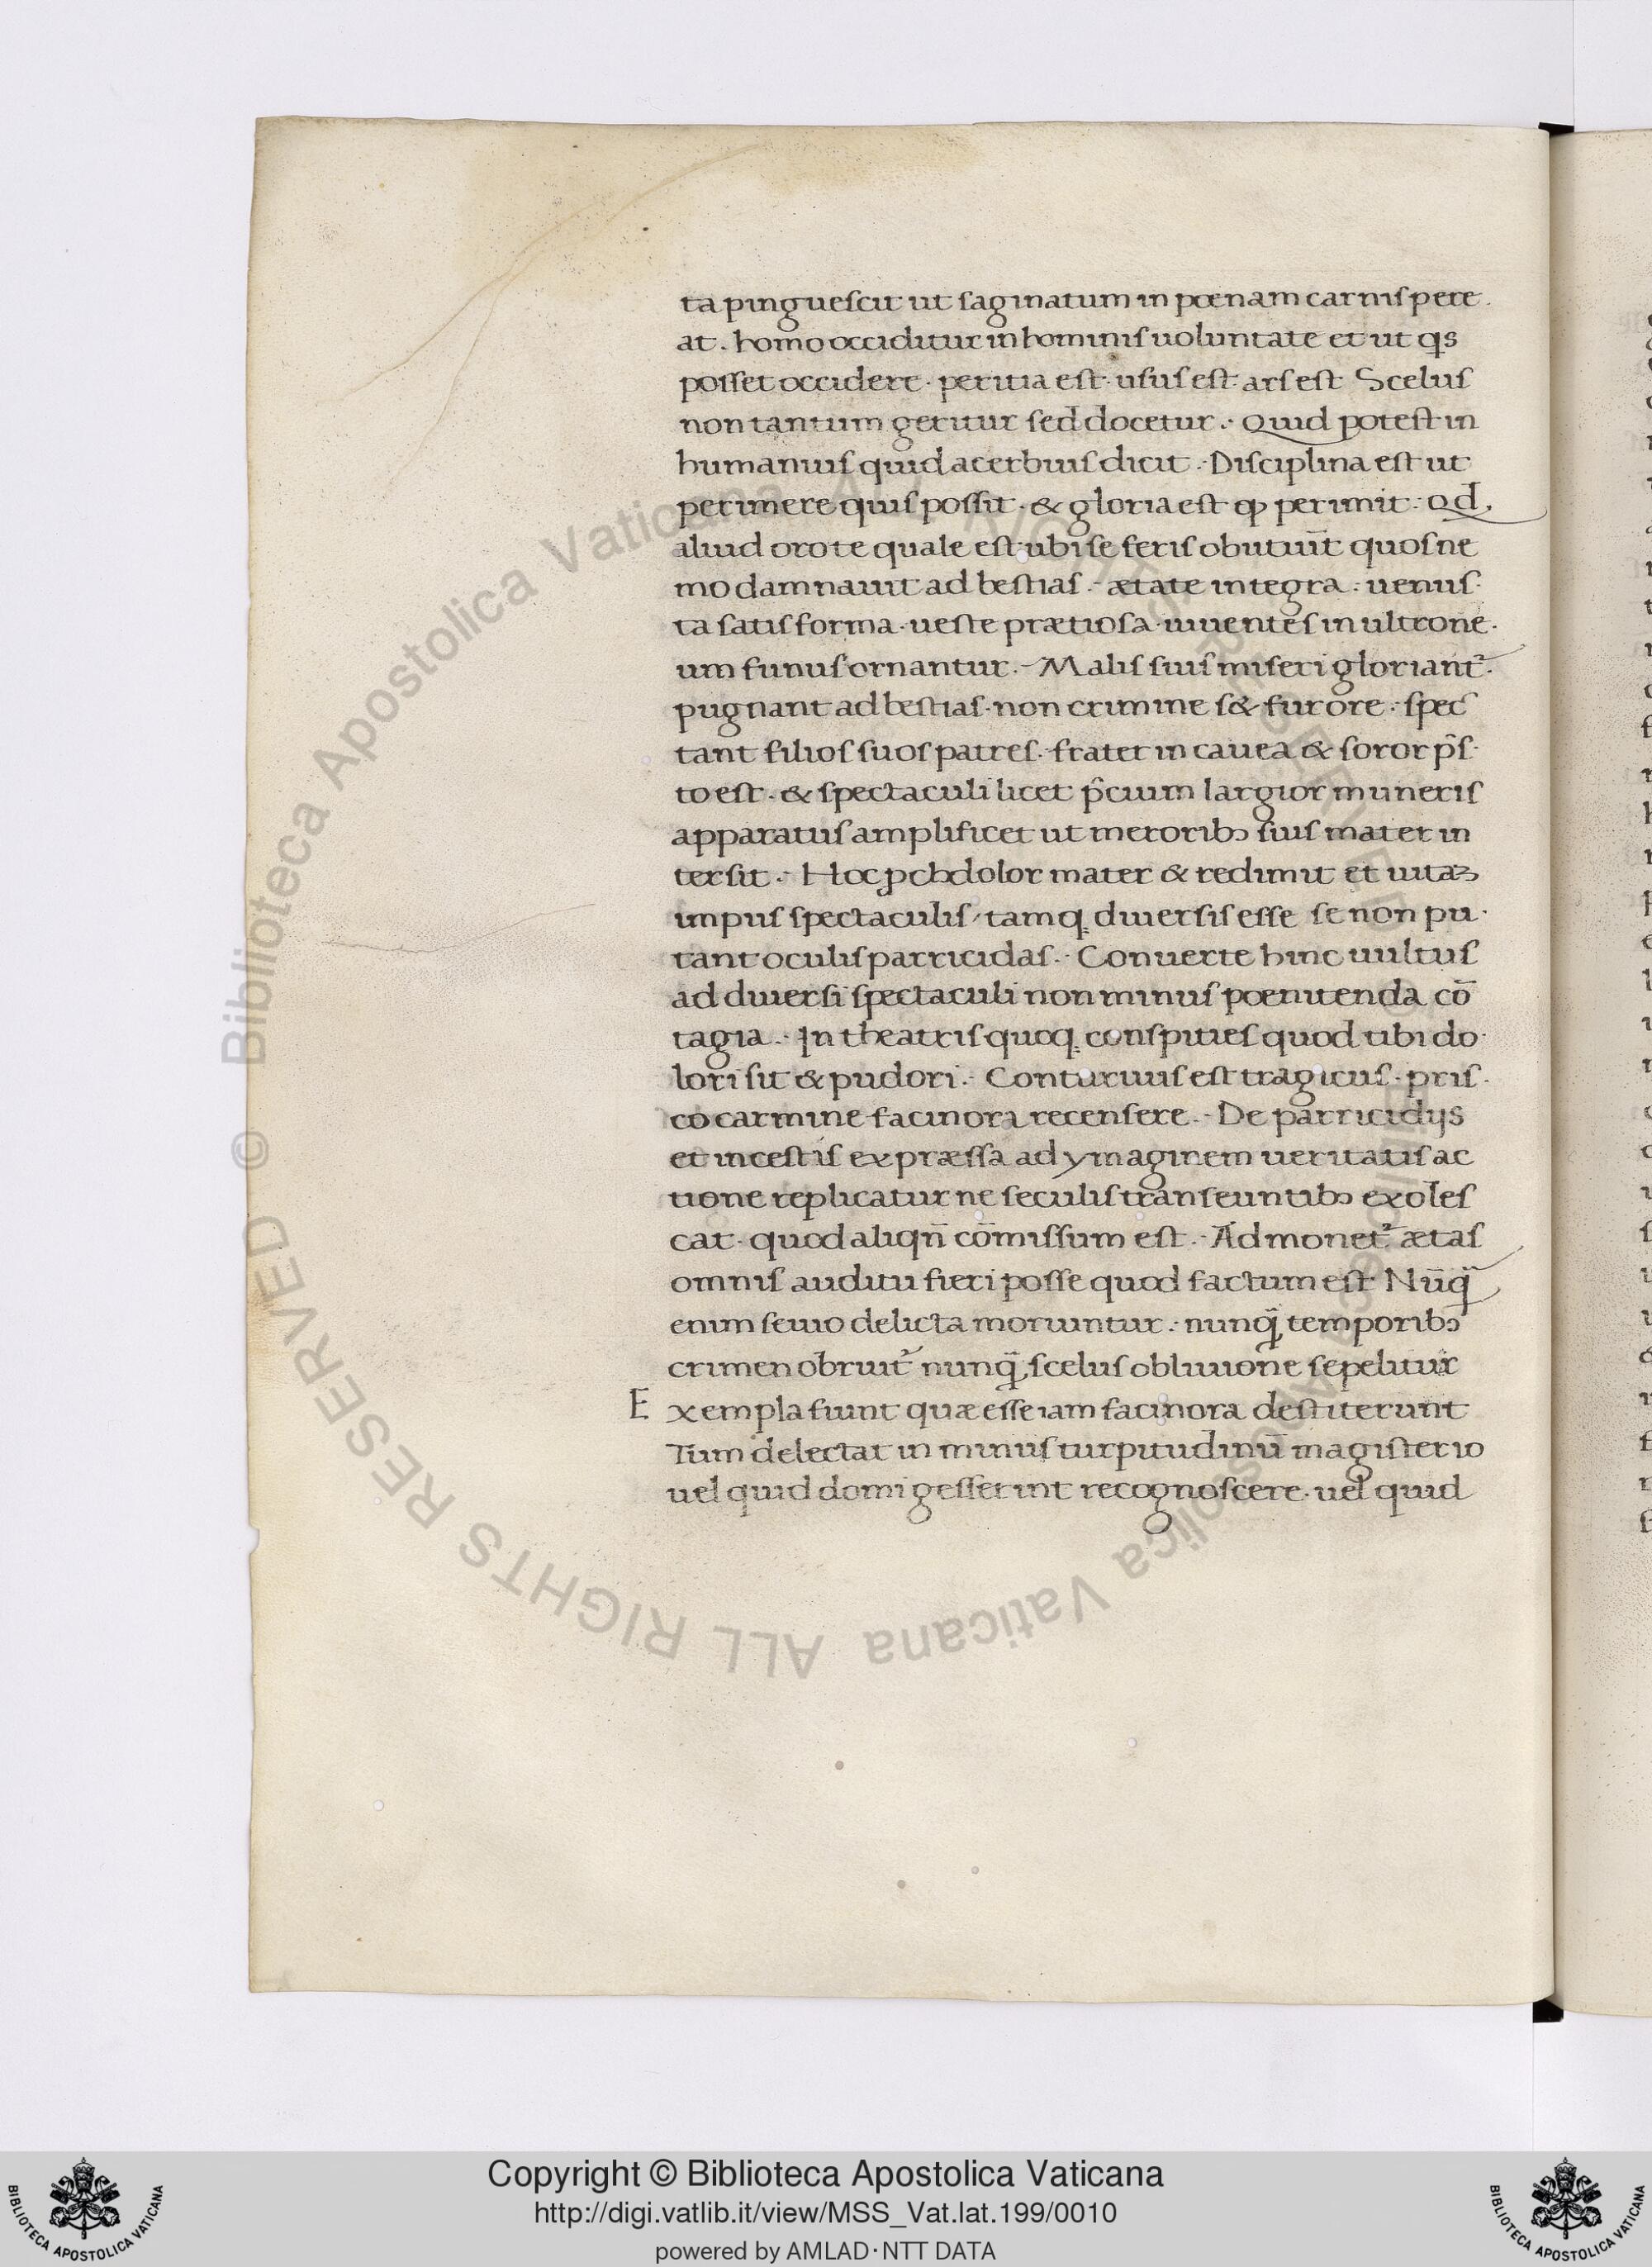 ta pinguescit ut saginatum in pœnam carnis pere
at. homo occiditur in hominis uoluntate et ut qs
posset occidere· peritia est· usus est· ars est Scelus
non tantum geritur sed docetur. Quid potest in
humanius quid acerbius dici. Disciplina est ut
perimere quis possit· & gloria est qꝫ perimit· Qd,
aliud oro te quale est· ubi se feris obutiūt quos ne
mo damnauit ad bestias· ætate integra· uenus·
ta satis forma· ueste prætiosa· uiuentes in ultrone·
um funus ornantur. Malis suis miseri gloriant᷑.
pugnant ad bestias· non crimine s& furore· spec
tant filios suos patres· frater in cauea & soror p̄s·
to est· & spectaculi licet p̄cium largior muneris
apparatus amplificet ut meroribꝰ suis mater in
tersit. Hoc pchdolor mater & redimit et uitaꝫ
impus spectaculis, tamq̨ diuersis esse se non pu·
tant oculis parricidas. Conuerte hinc uultus
ad diuersi spectaculi non minus poenitenda cō
tagia. In theatris quoq̨ conspities quod tibi do·
lori sit & pudori. Conturuus est tragicus· pris·
co carmine facinora recensere. De parricidijs
et incestis expræssa ad ymaginem ueritatis ac
tione replicatur ne seculis transeuntibꝰ exoles
cat· quod aliqn̄ cōmissum est. Admonet᷑ ætas
omnis auditu fieri posse quod factum est Nūq̄
enim seuio delicta moriuntur· nunq̄ temporibꝰ
crimen obruit᷑ nunq̄ scelus obliuione sepelitur
Exempla fiunt quæ esse iam facinora destiterunt
Tum delectat in minus turpitudinū magisterio
uel quid domi gesserint recognoscere· uel quid
© Biblioteca Apostolica Vaticana ALL RIGHTS RESERVED
© Biblioteca Apostolica Vaticana ALL RIGHTS RESERVED
Copyright © Biblioteca Apostolica Vaticana
http://digi.vatlib.it/view/MSS_Vat.lat.199/0010
powered by AMLAD·NTT DATA
BIBLIOTECA APOSTOLICA VATICANA
BIBLIOTECA APOSTOLICA VATICANA